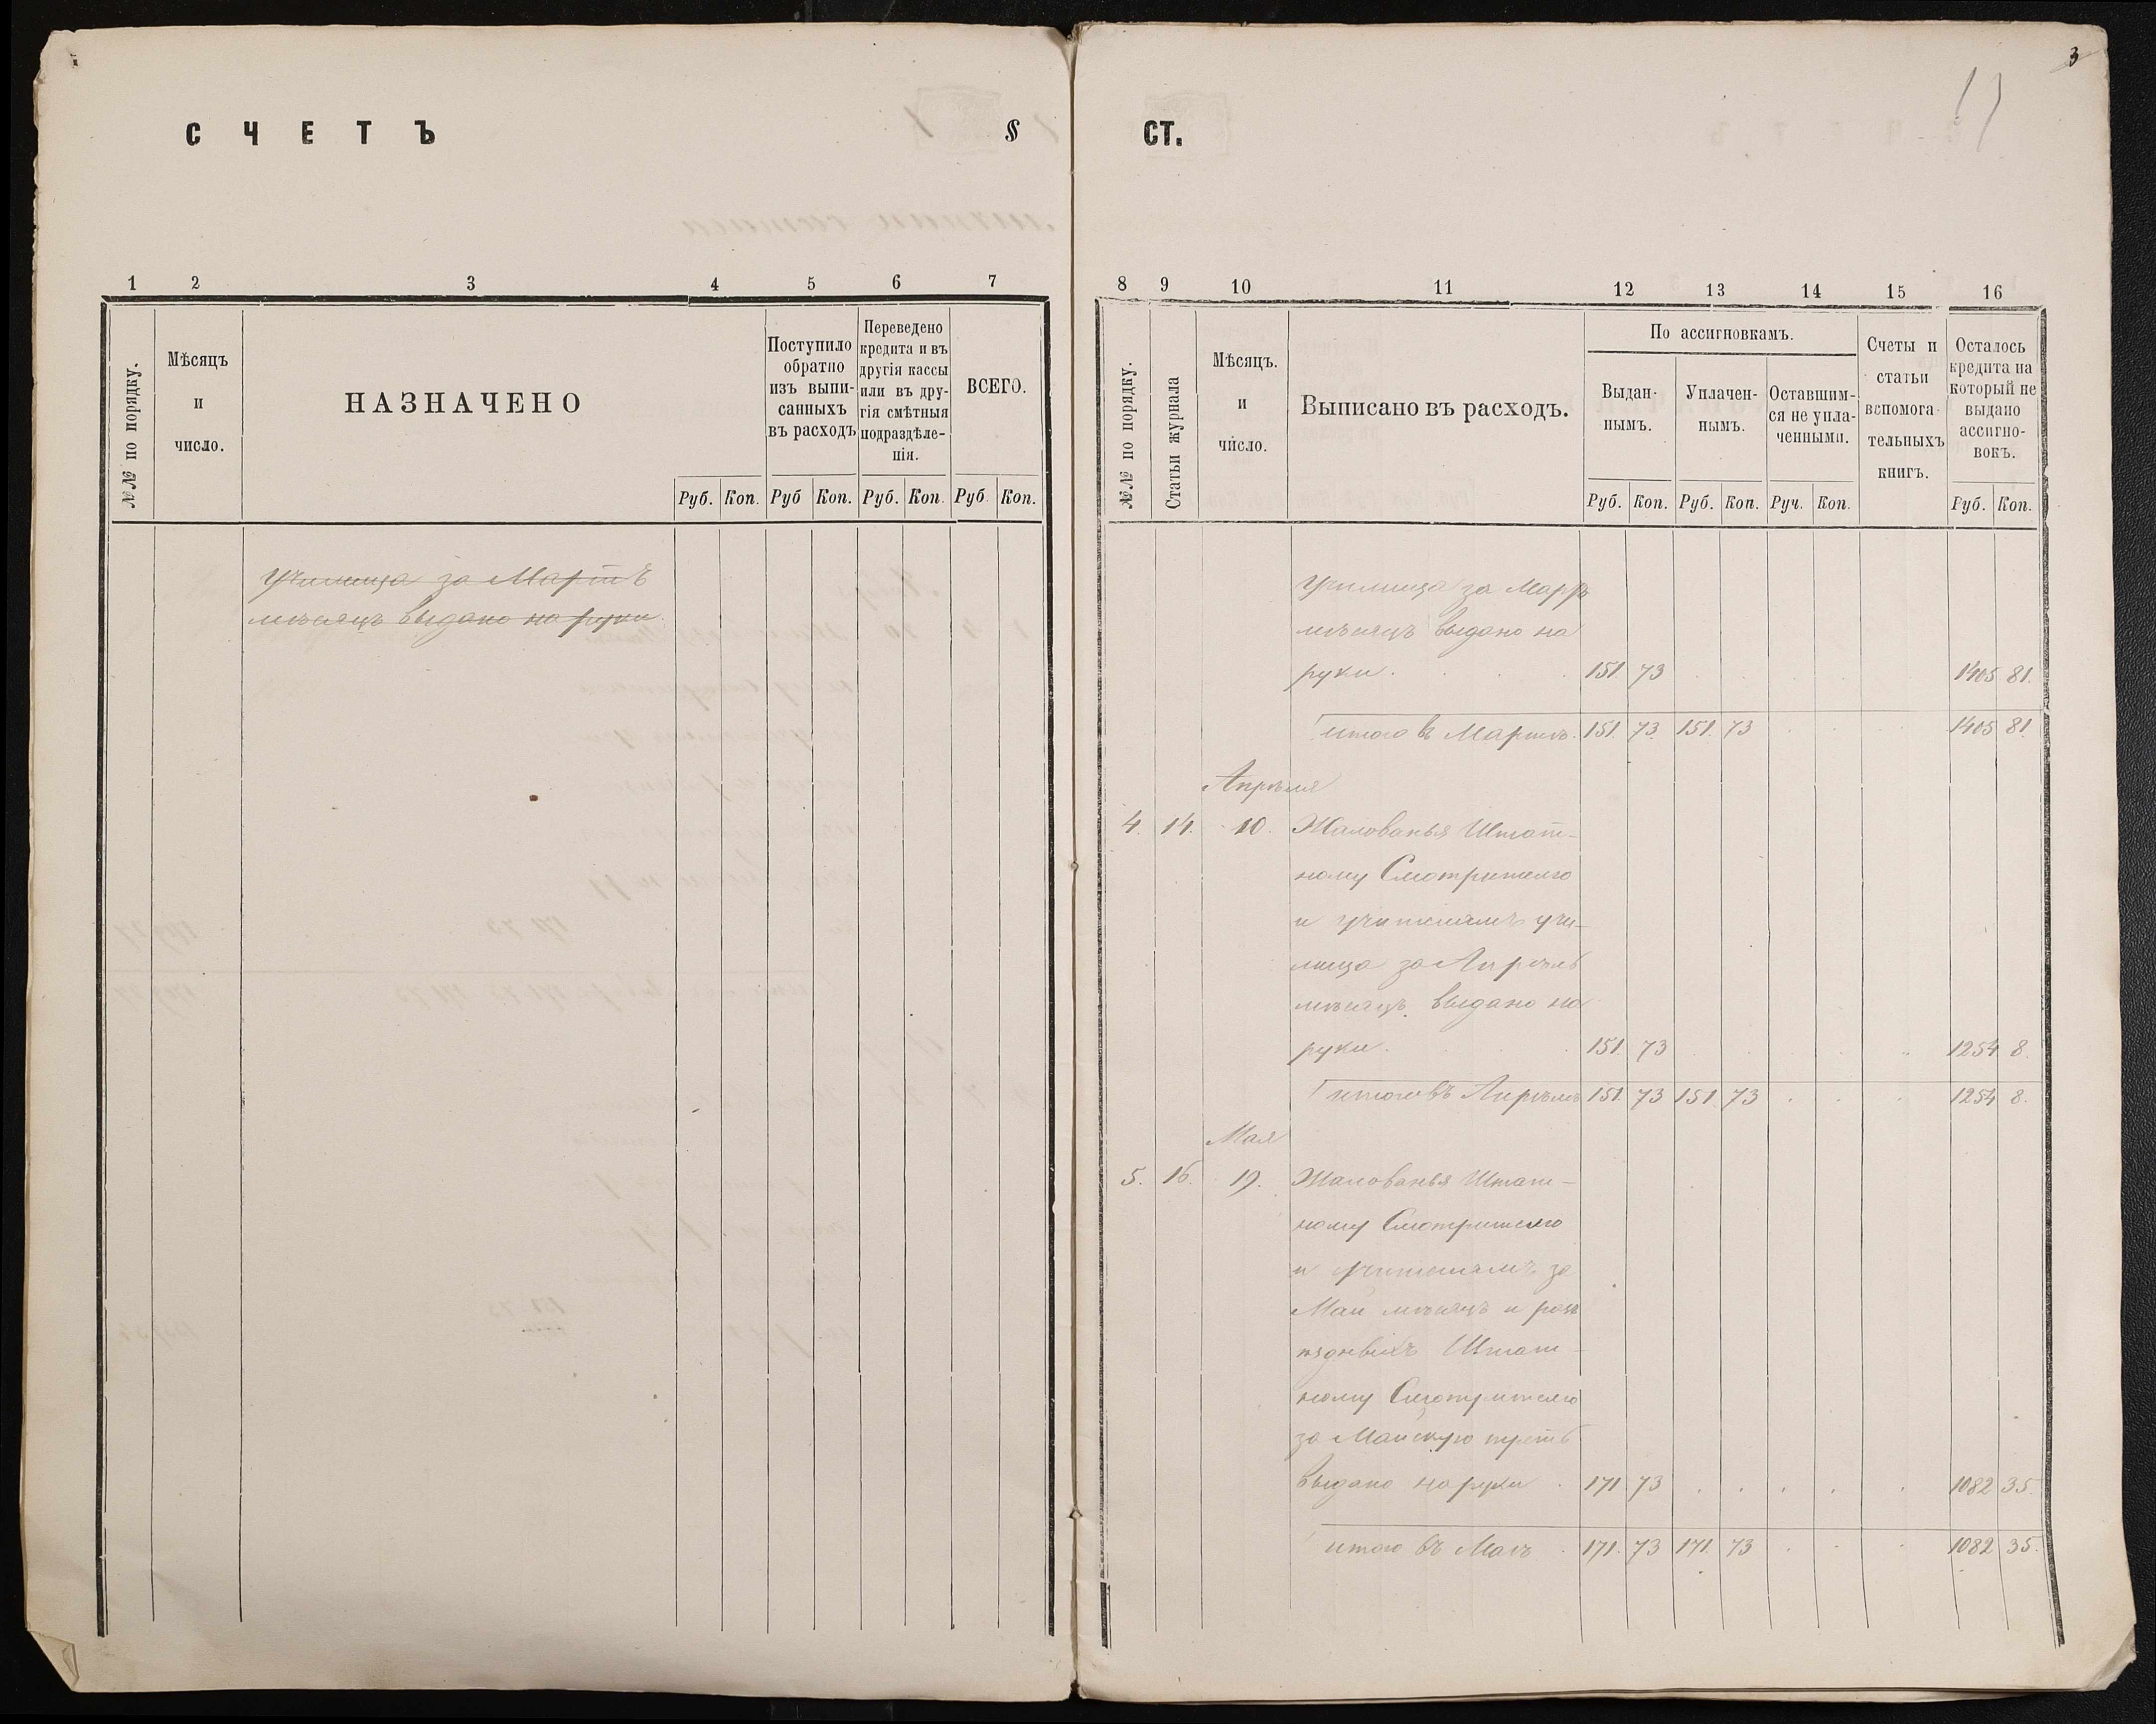 СЧЕТЪ §
1 2 3 4 5 6 7
№№ по порядку.
Мѣсяцъ
и
число.
НАЗНАЧЕНО
Поступило
обратно
изъ выпи-
санныхъ
въ расходъ
Переведено
кредита и въ
другія кассы
или въ дру-
гія смѣтныя
подраздѣле-
нія.
ВСЕГО.
Руб. Коп. Руб Коп. Руб. Коп. Руб. Коп.
Училища за Мартъ
мѣсяцъ выдано на руки.
3
СТ.
8 9 10 11 12 13 14 15 16
№№ по порядку.
Статьи журнала
Мѣсяцъ.
и
число.
Выписано въ расходъ.
По ассигновкамъ.
Выдан-
нымъ.
Уплачен-
нымъ.
Оставшим-
ся не упла-
ченными.
Счеты и
статьи
вспомога-
тельныхъ
книгъ.
Осталось
кредита на
который не
выдано
ассигно-
вокъ.
Руб. Коп. Руб. Коп. Руч. Коп. Руб. Коп.
Училища за Мартъ
мѣсяцъ выдано на
руки. 151 73 1405 81.
итого въ Мартѣ. 151. 73. 151. 73 1405 81.
Апрѣля
4. 14. 10. Жалованья Штат-
ному Смотрителю
и учителямъ учи-
лища за Апрѣль
мѣсяцъ выдано на
руки. 151. 73 1254 8.
итого въ Апрѣлѣ 151. 73 151. 73 1254 8.
Мая
5. 16. 19. Жалованья Штат-
ному Смотрителю
и учителямъ за
Май мѣсяцъ и разъ
ѣздныхъ Штат-
ному Смотрителю
за Майскую треть
выдано на руки. 171 73 1082 35.
итого въ Маѣ. 171. 73 171. 73 1082 35.